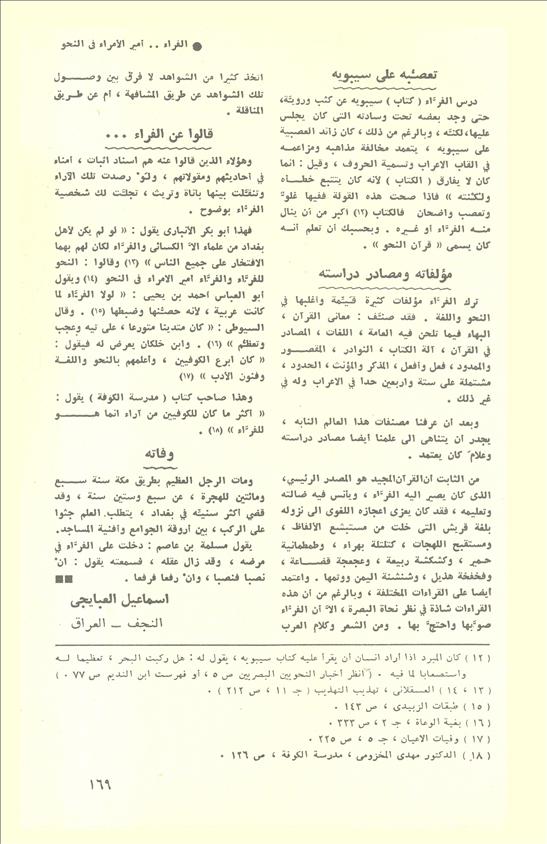 ● الفراء .. أمير الأمراء فى النحو
تعصّبه على سيبويه
درس الفرّاء ( كتاب ) سيبويه عن كثب ورويّة،
حتى وجد بعضه تحت وسادته التى كان يجلس
عليها، لكنّه ، وبالرغم من ذلك ، كان زائد العصبية
على سيبويه ، يتعمد مخالفة مذاهبه ومزاعمه
في القاب الاعراب وتسمية الحروف ، وقيل : انما
كان لا يفارق ( الكتاب ) لأنه كان يتتبع خطأه
ولكنته » فاذا صحت هذه القولة ففيها غلوّ
وتعصب واضحان فالكتاب (١٢) اكبر من أن ينال
منه الفرّاء أو غيره . وبحسبك أن تعلم أنه
كان يسمى « قرآن النحو » .
مؤلفاته ومصادر دراسته
ترك الفرّاء مؤلفات كثيرة قيّمة وأغلبها في
النحو واللغة . فقد صنّف : معانى القرآن ،
البهاء فيما تلحن فيه العامة ، اللغات ، المصادر
في القرآن ، آلة الكتاب ، النوادر ، المقصور
والممدود ، فعل وأفعل ، المذكر والمؤنث ، الحدود ،
مشتملة على ستة وأربعين حدا في الاعراب وله في
غير ذلك .
وبعد أن عرفنا مصنفات هذا العالم النابه ،
يجدر أن يتناهى الى علمنا أيضا مصادر دراسته
وعلامَ كان يعتمد .
من الثابت أن القرآن المجيد هو المصدر الرئيسي،
الذى كان يصير اليه الفراء ، ويأنس فيه ضالته
وتعليمه ، فقد كان يعزى اعجازه اللغوى الى نزوله
بلغة قريش التى خلت من مستبشع الألفاظ ،
ومستقبح اللهجات ، كتلتلة بهراء ، وطمطمانية
حمير ، وكشكشة ربيعة ، وعجعجة قضاعة ،
وفخفخة هذيل ، وشنشنة اليمن ووتمها . واعتمد
أيضا على القراءات المختلفة ، وبالرغم من أن هذه
القراءات شاذة في نظر نحاة البصرة ، الاّ أن الفرّاء
صوّبها واحتجّ بها . ومن الشعر وكلام العرب
اتخذ كثيرا من الشواهد لا فرق بين وصول
تلك الشواهد عن طريق المشافهة ، أم عن طريق
المناقلة .
قالوا عن الفراء ...
وهؤلاء الذين قالوا عنه هم اسناد اثبات ، أمناء
في أحاديثهم ومقولاتهم ، ولوْ رصدت تلك الآراء
وتنقّلت بينها بأناة وتريث ، تجلّت لك شخصية
الفرّاء بوضوح .
فهذا أبو بكر الانبارى يقول : « لو لم يكن لأهل
بغداد من علماء الاّ الكسائى والفرّاء لكان لهم بهما
الافتخار على جميع الناس » (١٣) وقالوا : النحو
للفرّاء والفرّاء أمير الامراء فى النحو (١٤) ويقول
أبو العباس أحمد بن يحيى : « لولا الفرّاء لما
كانت عربية ، لأنه حصّنها وضبطها (١٥) . وقال
السيوطى : « كان متدينا متورعا ، على تيه وعجب
وتعظّم » (١٦) . وابن خلكان يعرض له فيقول :
« كان أبرع الكوفيين ، وأعلمهم بالنحو واللغة
وفنون الأدب » (١٧)
وهذا صاحب كتاب ( مدرسة الكوفة ) يقول :
« أكثر ما كان للكوفيين من آراء انما هو
للفرّاء » (١٨) .
وفاته
ومات الرجل العظيم بطريق مكة سنة سبع
ومائتين للهجرة ، عن سبع وستين سنة ، وقد
قضى أكثر سنيّه في بغداد ، يتطلب العلم جثوا
على الركب ، بين أروقة الجوامع وأفنية المساجد.
يقول مسلمة بن عاصم : دخلت على الفرّاء في
مرضه ، وقد زال عقله ، فسمعته يقول : انْ
نصبا فنصبا ، وانْ رفعا فرفعا . ■■
اسماعيل العبايجى
النجف ــ العراق
( ١٢ ) كان المبرد اذا أراد انسان أن يقرأ عليه كتاب سيبويه ، يقول له : هل ركبت البحر ، تعظيما له
واستصعابا لما فيه . ( انظر أخبار النحويين البصريين ص ٥ ، أو فهرست ابن النديم ص ٧٧ ٠ )
( ١٣ ، ١٤ ) العسقلانى ، تهذيب التهذيب ( جـ ١١ ، ص ٢١٢ ) .
( ١٥ ) طبقات الزبيدى ، ص ١٤٣ .
( ١٦ ) بغية الوعاة ، جـ ٢ ، ص ٣٣٣ .
( ١٧ ) وفيات الاعيان ، جـ ٥ ، ص ٢٢٥ .
( ١٨ ) الدكتور مهدى المخزومى ، مدرسة الكوفة ، ص ١٢٦ .
١٦٩